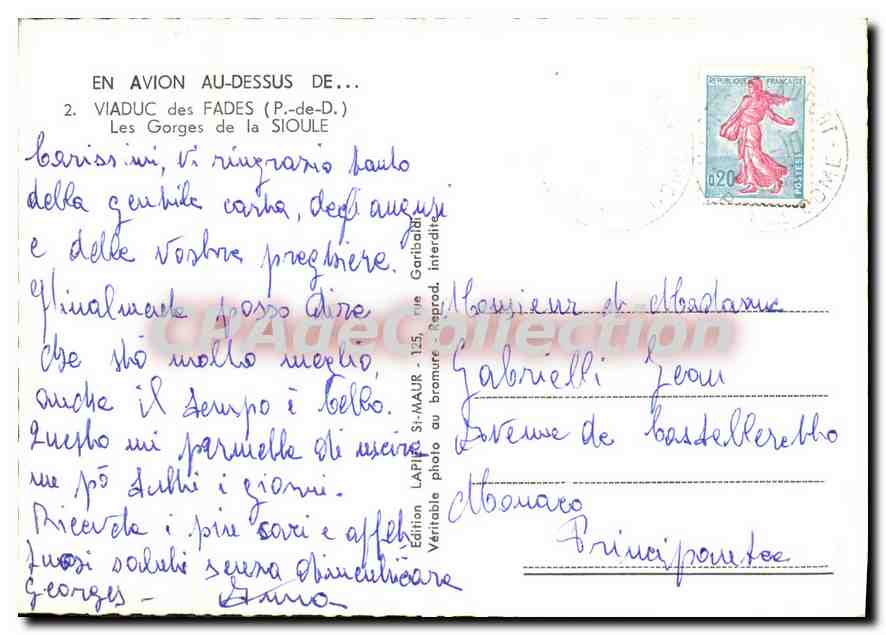 EN AVION AU-DESSUS DE...
2. VIADUC des FADES (P.-de-D.)
Les Gorges de la SIOULE
Carissimi, Vi ringrazio tanto
della gentile carta, degli auguri
e delle vostre preghiere.
Finalmente posso dire
che stò molto meglio,
anche il tempo è bello.
Questo mi permette di uscire
un pò tutti i giorni.
Ricevete i più cari e affet-
tuosi saluti senza dimenticare
Georges - Anna
Edition LAPIE, St-MAUR - 125, rue Garibaldi
Véritable photo au bromure - Reprod. interdite
REPUBLIQUE FRANÇAISE
0.20
POSTES
DOME
Monsieur et Madame
Gabrielli Jean
Avenue de Castelleretto
Monaco
Principautee
CPAdeCollection